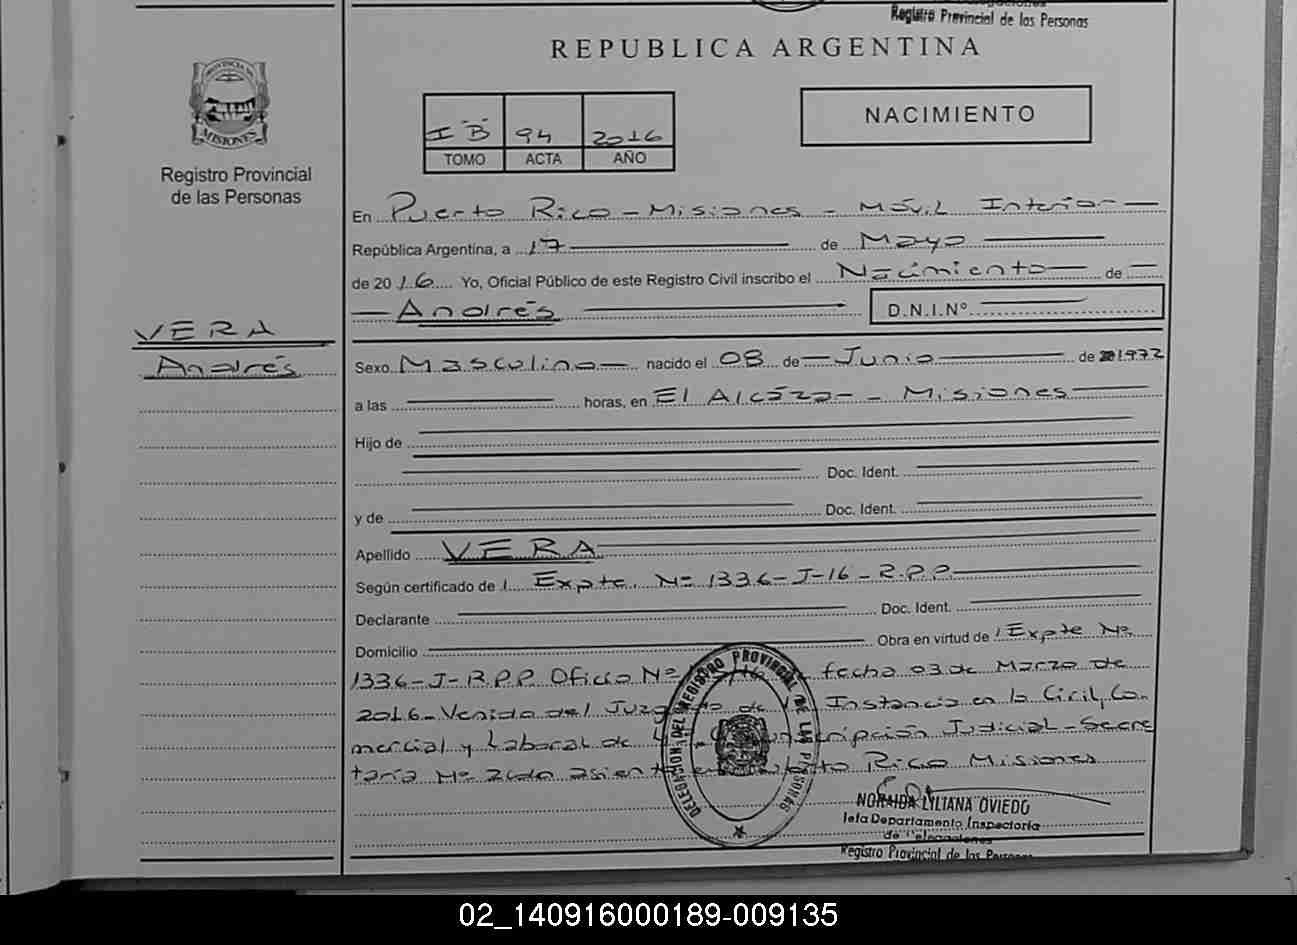 Registro Provincial de las Personas
REPUBLICA ARGENTINA
PROVINCIA DE
MISIONES
Registro Provincial
de las Personas
I "B" 94 2016
TOMO ACTA AÑO
NACIMIENTO
En Puerto Rico - Misiones - Móvil Interior
República Argentina, a 17 de Mayo
de 2016 Yo, Oficial Público de este Registro Civil inscribo el Nacimiento de
Andrés D.N.I.Nº
VERA
Andrés
Sexo Masculino nacido el 08 de Junio de 1972
a las horas, en El Alcázar - Misiones
Hijo de
Doc. Ident.
y de Doc. Ident.
Apellido VERA
Según certificado de Expte. Nº 1336-J-16-R.P.P.
Declarante Doc. Ident.
Domicilio Obra en virtud de Expte Nº
1336-J-R.P.P. Oficio Nº fecha 03 de Marzo de
2016 - Venido del Juzgado de Instancia en lo Civil, Co-
mercial y Laboral de Circunscripción Judicial - Secre
taría Nº 2 con asiento en Puerto Rico Misiones
DELEGACION DEL REGISTRO PROVINCIAL DE LAS PERSONAS
NORAIDA LILIANA OVIEDO
Jefa Departamento Inspectoria
de Delegaciones
Registro Provincial de las Personas
02_140916000189-009135